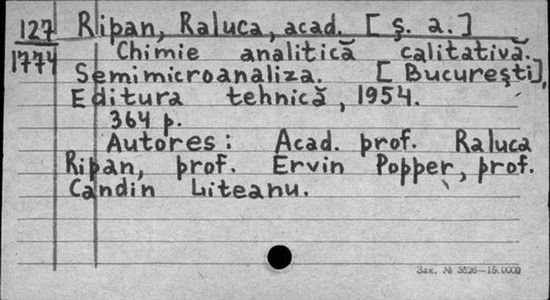 127 Ripan, Raluca, acad. [ş. a.]
1774 Chimie analitică calitativă.
Semimicroanaliza. [Bucureşti],
Editura tehnică, 1954.
364 p.
Autores: Acad. prof. Raluca
Ripan, prof. Ervin Popper, prof.
Candin Liteanu.
Зак. № 3826—15.000